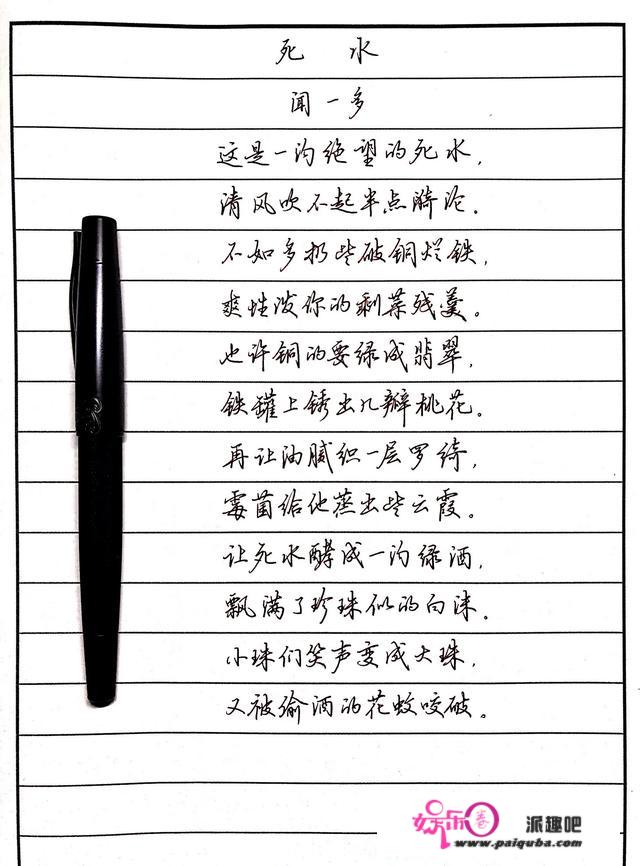 死 水
闻一多
这是一沟绝望的死水，
清风吹不起半点漪沦。
不如多扔些破铜烂铁，
爽性泼你的剩菜残羹。
也许铜的要绿成翡翠，
铁罐上锈出几瓣桃花。
再让油腻织一层罗绮，
霉菌给他蒸出些云霞。
让死水酵成一沟绿酒，
飘满了珍珠似的白沫。
小珠们笑声变成大珠，
又被偷酒的花蚊咬破。
娱乐圈 派趣吧
www.paiquba.com